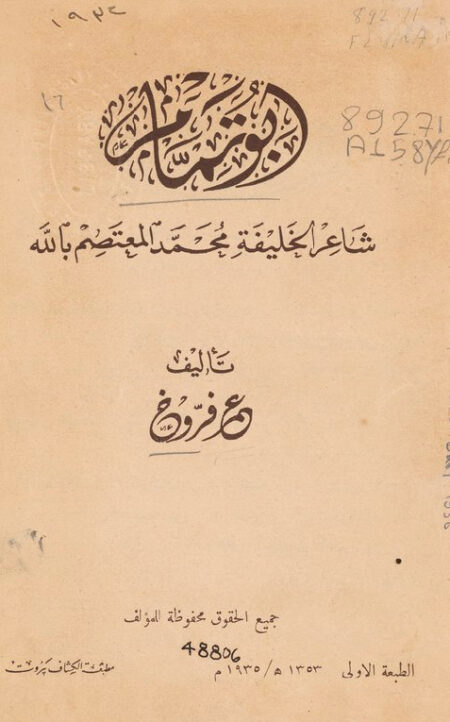 ١٩٣٤
892.71
١٦
892.71
أبو تمام
شَاعِر الخَليفَةِ مُحَمَّد المُعتَصِم بالله
تَأليف
عمر فرّوخ
جميع الحقوق محفوظة للمؤلف
48806
الطبعة الاولى ١٣٥٣ ه‍/١٩٣٥ م
مطبعة الكشاف بيروت